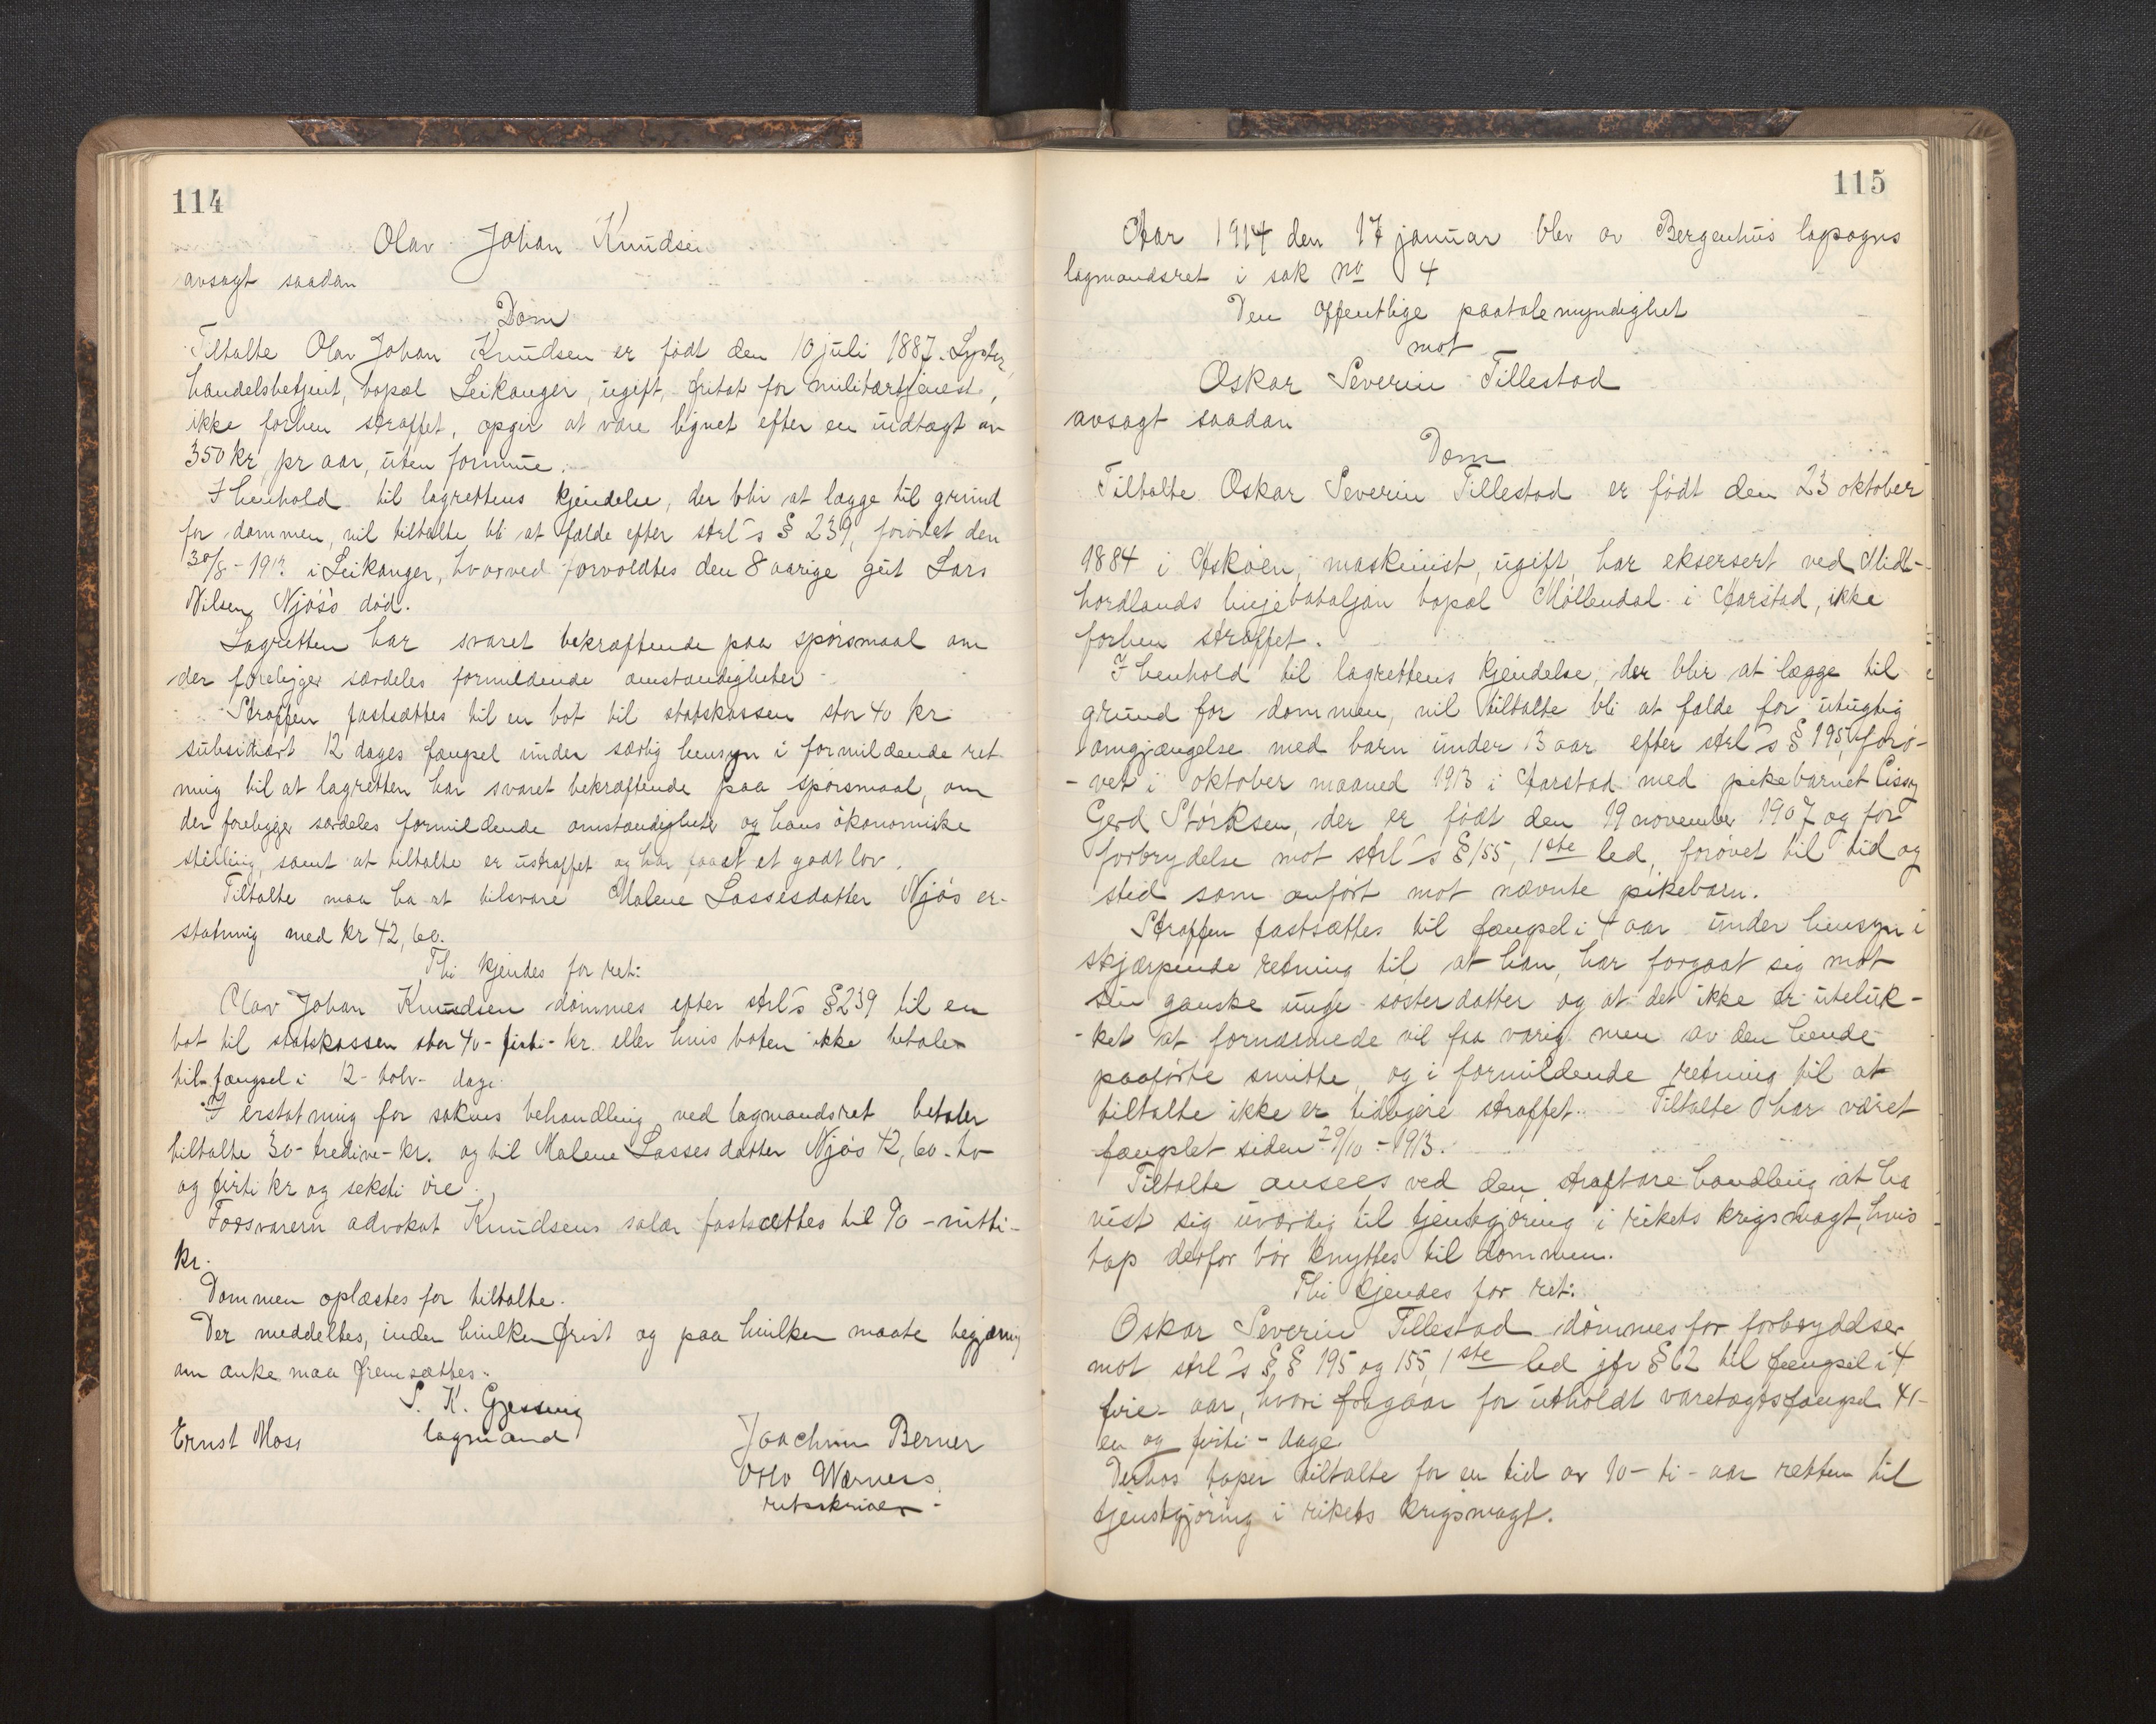 114
Olav Johan Knudsen
avsagt saadan
Dom
Tiltalte Olav Johan Knudsen er født den 10 juli 1887. Lyster,
handelsbetjent, bopæl Leikanger, ugift, fritat for militærtjenest,
ikke forhen straffet, opgir at være lignet efter en indtægt av
350 kr pr aar, uten formue.
I henhold til lagrettens kjendelse, der blir at lægge til grund
for dommen, vil tiltalte bli at fælde efter strl's § 239, forøvet den
30/8 - 1913 i Leikanger, hvorved forvoldtes den 8 aarige gut Lars
Nilsen Njøs's død.
Lagretten har svaret bekræftende paa spørsmaal om
der foreligger særdeles formildende omstændigheter
Straffen fastsættes til en bot til statskassen stor 40 kr
subsidiært 12 dages fængsel under særlig hensyn i formildende ret
ning til at lagretten har svaret bekræftende paa spørsmaal, om
der foreligger særdeles formildende omstændigheter og hans økonomiske
stilling, samt at tiltalte er ustraffet og har faaet et godt lov.
Tiltalte maa ha at tilsvare Malene Lassesdatter Njøs er-
statning med kr 42,60.
Thi kjendes for ret:
Olav Johan Knudsen dømmes efter strl's § 239 til en
bot til statskassen stor 40 - firti - kr. eller hvis boten ikke betales
til fængsel i 12 - tolv - dage.
I erstatning for sakens behandling ved lagmandsret betaler
tiltalte 30 - tredive - kr. og til Malene Lassesdatter Njøs 42,60 - to
og firti kr og seksti øre.
Forsvareren advokat Knudsens salær fastsættes til 90 - nitti -
kr.
Dommen oplæstes for tiltalte.
Der meddeltes, inden hvilken frist og paa hvilken maate begjæring
om anke maa fremsættes.
S. K. Gjessing
lagmand
Ernst Moss
Joachim Berner
Otto Werners
retsskriver -
115
Aar 1914 den 17 januar blev av Bergenhus lagsogns
lagmandsret i sak no 4
Den offentlige paatalemyndighet
mot
Oskar Severin Tillestad
avsagt saadan
Dom
Tiltalte Oskar Severin Tillestad er født den 23 oktober
1884 i Askøen, maskinist, ugift, har eksersert ved Midt-
hordlands linjebataljon bopæl Møllendal i Aarstad, ikke
forhen straffet.
I henhold til lagrettens kjendelse, der blir at lægge til
grund for dommen, vil tiltalte bli at fælde for utugtig
omgjængelse med barn under 13 aar efter strl's § 195, forø-
- vet i oktober maaned 1913 i Aarstad med pikebarnet Cissy
Gerd Størksen, der er født den 19 november 1907 og for
forbrydelse mot strl's § 155, 1ste led, forøvet til tid og
sted som anført mot nævnte pikebarn.
Straffen fastsættes til fængsel i 4 aar under hensyn i
skjærpende retning til at han har forgaat sig mot
sin ganske unge søsterdatter og at det ikke er uteluk-
- ket at fornærmede vil faa varig men av den hende
paaførte smitte, og i formildende retning til at
tiltalte ikke er tidligere straffet. Tiltalte har været
fængslet siden 29/10 - 1913.
Tiltalte ansees ved den strafbare handling at ha
vist sig uværdig til tjenstgjøring i rikets krigsmagt, hvis
tap derfor bør knyttes til dommen.
Thi kjendes for ret:
Oskar Severin Tillestad dømmes for forbrydelse
mot strl's §§ 195 og 155, 1ste led jfr § 62 til fængsel i 4
fire - aar, hvori fragaar for utholdt varetægtsfængsel 41 -
en og firti - dage.
Derhos taper tiltalte for en tid av 10 - ti - aar retten til
tjenstgjøring i rikets krigsmagt.